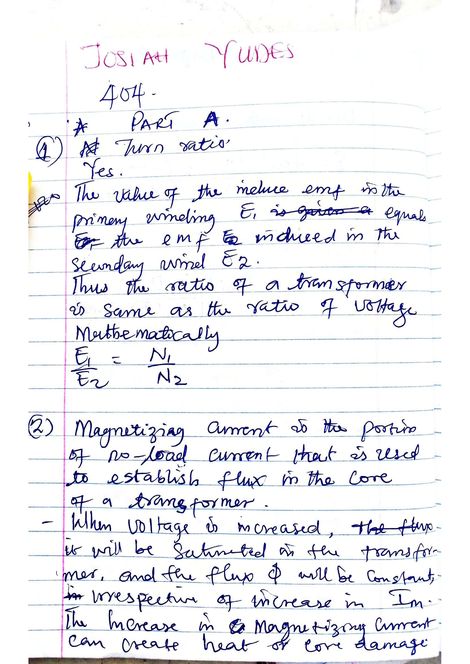 JOSIAH YUDES
404.
A PART A.
(1) Turn ratio
Yes.
The value of the induce emf in the
primary winding E1 is given a equals
the emf induced in the
secondary wind E2.
Thus the ratio of a transformer
is same as the ratio of voltage
Mathematically
E1/E2 = N1/N2
(2) Magnetizing current is the portion
of no-load current that is used
to establish flux in the core
of a transformer.
- When voltage is increased, the flux
it will be saturated in the transfor-
mer, and the flux φ will be constant,
irrespective of increase in Im
The Increase in Magnetizing current
can create heat or core damage